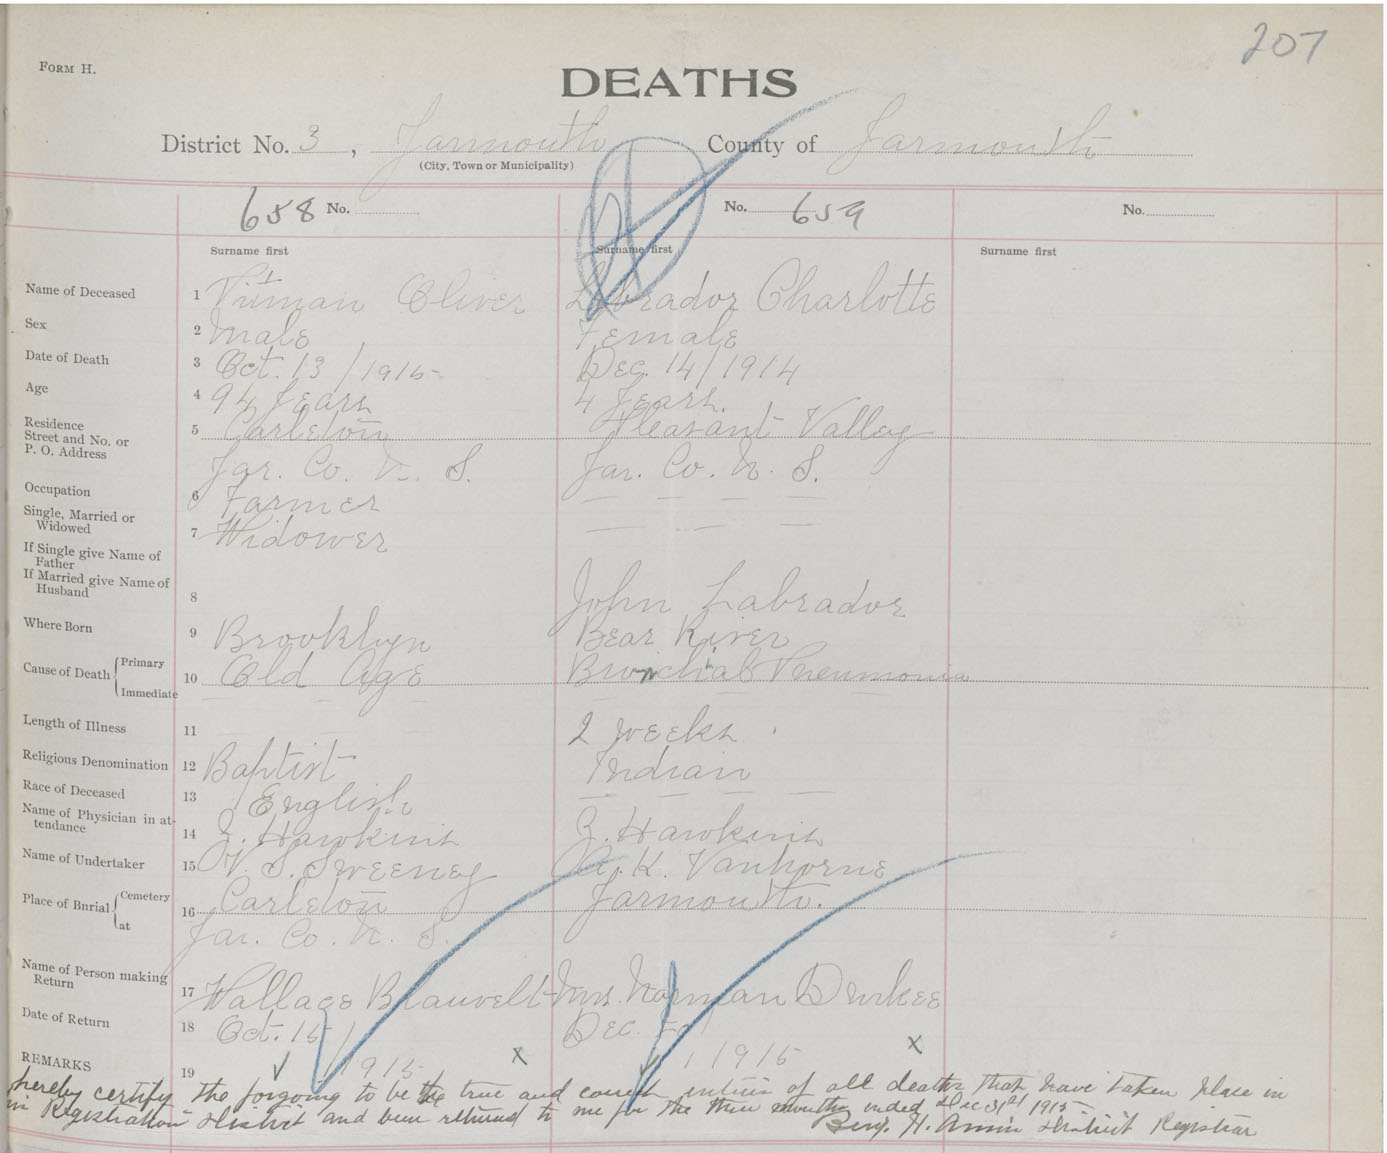 207
FORM H.
DEATHS
District No. 3, Yarmouth County of Yarmouth
(City, Town or Municipality)
658 No. No. 659 No.
Surname first Surname first Surname first
Name of Deceased 1 Titman Oliver Labrador Charlotte
Sex 2 Male Female
Date of Death 3 Oct. 13/1915 Dec. 14/1914
Age 4 94 Years 4 Years.
Residence
Street and No. or 5 Carleton Pleasant Valley
P. O. Address
Yar. Co. N. S. Yar. Co. N. S.
Occupation 6 Farmer — — — —
Single, Married or
Widowed 7 Widower — — — —
If Single give Name of
Father
If Married give Name of
Husband 8 John Labrador
Where Born 9 Brooklyn Bear River
Cause of Death Primary 10 Old Age Bronchial Pneumonia
Immediate
Length of Illness 11 2 weeks
Religious Denomination 12 Baptist Indian
Race of Deceased 13 English — — — —
Name of Physician in at-
tendance 14 Z. Hawkins Z. Hawkins
Name of Undertaker 15 V. S. Sweeney A. K. Vanhorne
Place of Burial Cemetery 16 Carleton Yarmouth.
at Yar. Co. N. S.
Name of Person making
Return 17 Wallace Blauvelt Mrs. Norman Durkee
Date of Return 18 Oct. 15/ Dec.
1915 x /1915 x
REMARKS 19
hereby certify the forgoing to be the true and correct entries of all deaths that have taken place in
Registration District and been returned to me for the three months ended Dec 31st 1915
Benj. H. District Registrar